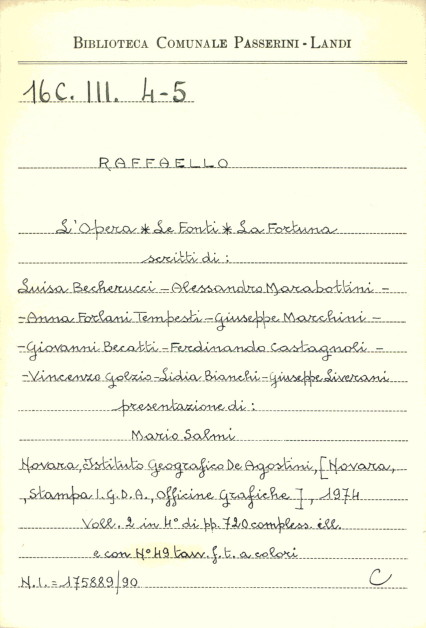 BIBLIOTECA COMUNALE PASSERINI - LANDI
16C. III. 4-5
RAFFAELLO
L'Opera * Le Fonti * La Fortuna
scritti di :
Luisa Becherucci - Alessandro Marabottini -
- Anna Forlani Tempesti - Giuseppe Marchini -
- Giovanni Becatti - Ferdinando Castagnoli -
- Vincenzo Golzio - Lidia Bianchi - Giuseppe Liverani
presentazione di :
Mario Salmi
Novara, Istituto Geografico De Agostini, [Novara,
, Stampa I.G.D.A., Officine Grafiche], 1974
Voll. 2 in 4° di pp. 720 compless. ill.
e con N° 49 tav. f. t. a colori
N.I. = 175889/90 C